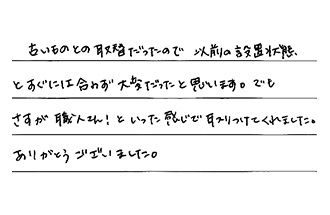 古いものとの取替だったので 以前の設置状態、
とすぐには合わず大変だったと思います。でも
さすが職人さん!といった感じで取りつけてくれました。
ありがとうございました。